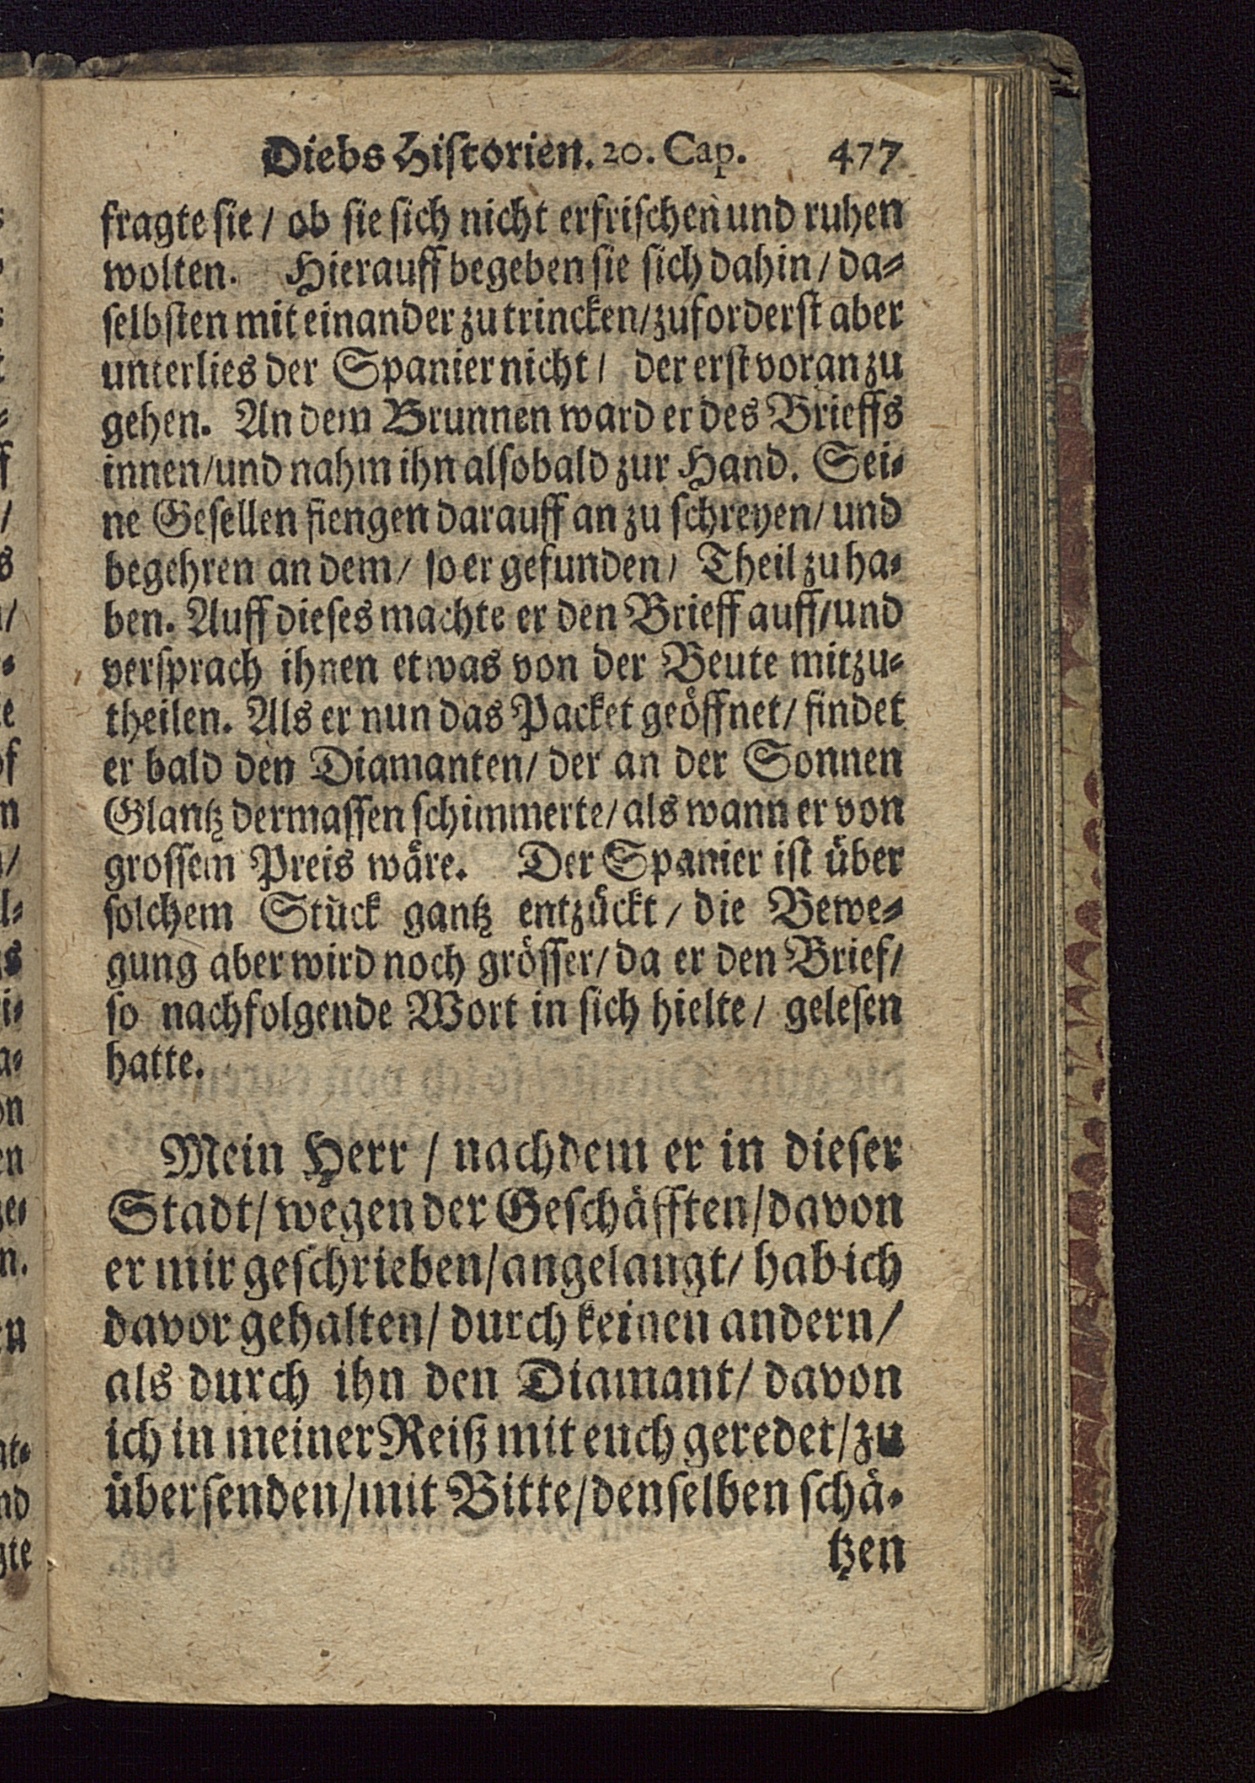 Diebs Historien. 20. Cap. 477
fragte sie / ob sie sich nicht erfrischen und ruhen
wolten. Hierauff begeben sie sich dahin / da-
selbsten mit einander zu trincken / zuforderst aber
unterlies der Spanier nicht / der erst voran zu
gehen. An dem Brunnen ward er des Brieffs
innen / und nahm ihn alsobald zur Hand. Sei-
ne Gesellen fiengen darauff an zu schreyen / und
begehren an dem / so er gefunden / Theil zu ha-
ben. Auff dieses machte er den Brieff auff / und
versprach ihnen etwas von der Beute mitzu-
theilen. Als er nun das Packet geöffnet / findet
er bald den Diamanten / der an der Sonnen
Glantz dermassen schimmerte / als wann er von
grossem Preis wäre. Der Spanier ist über
solchem Stück gantz entzückt / die Bewe-
gung aber wird noch grösser / da er den Brief /
so nachfolgende Wort in sich hielte / gelesen
hatte.
Mein Herr / nachdem er in dieser
Stadt / wegen der Geschäfften / davon
er mir geschrieben / angelangt / hab ich
davor gehalten / durch keinen andern /
als durch ihn den Diamant / davon
ich in meiner Reiß mit euch geredet / zu
übersenden / mit Bitte / denselben schä-
tzen